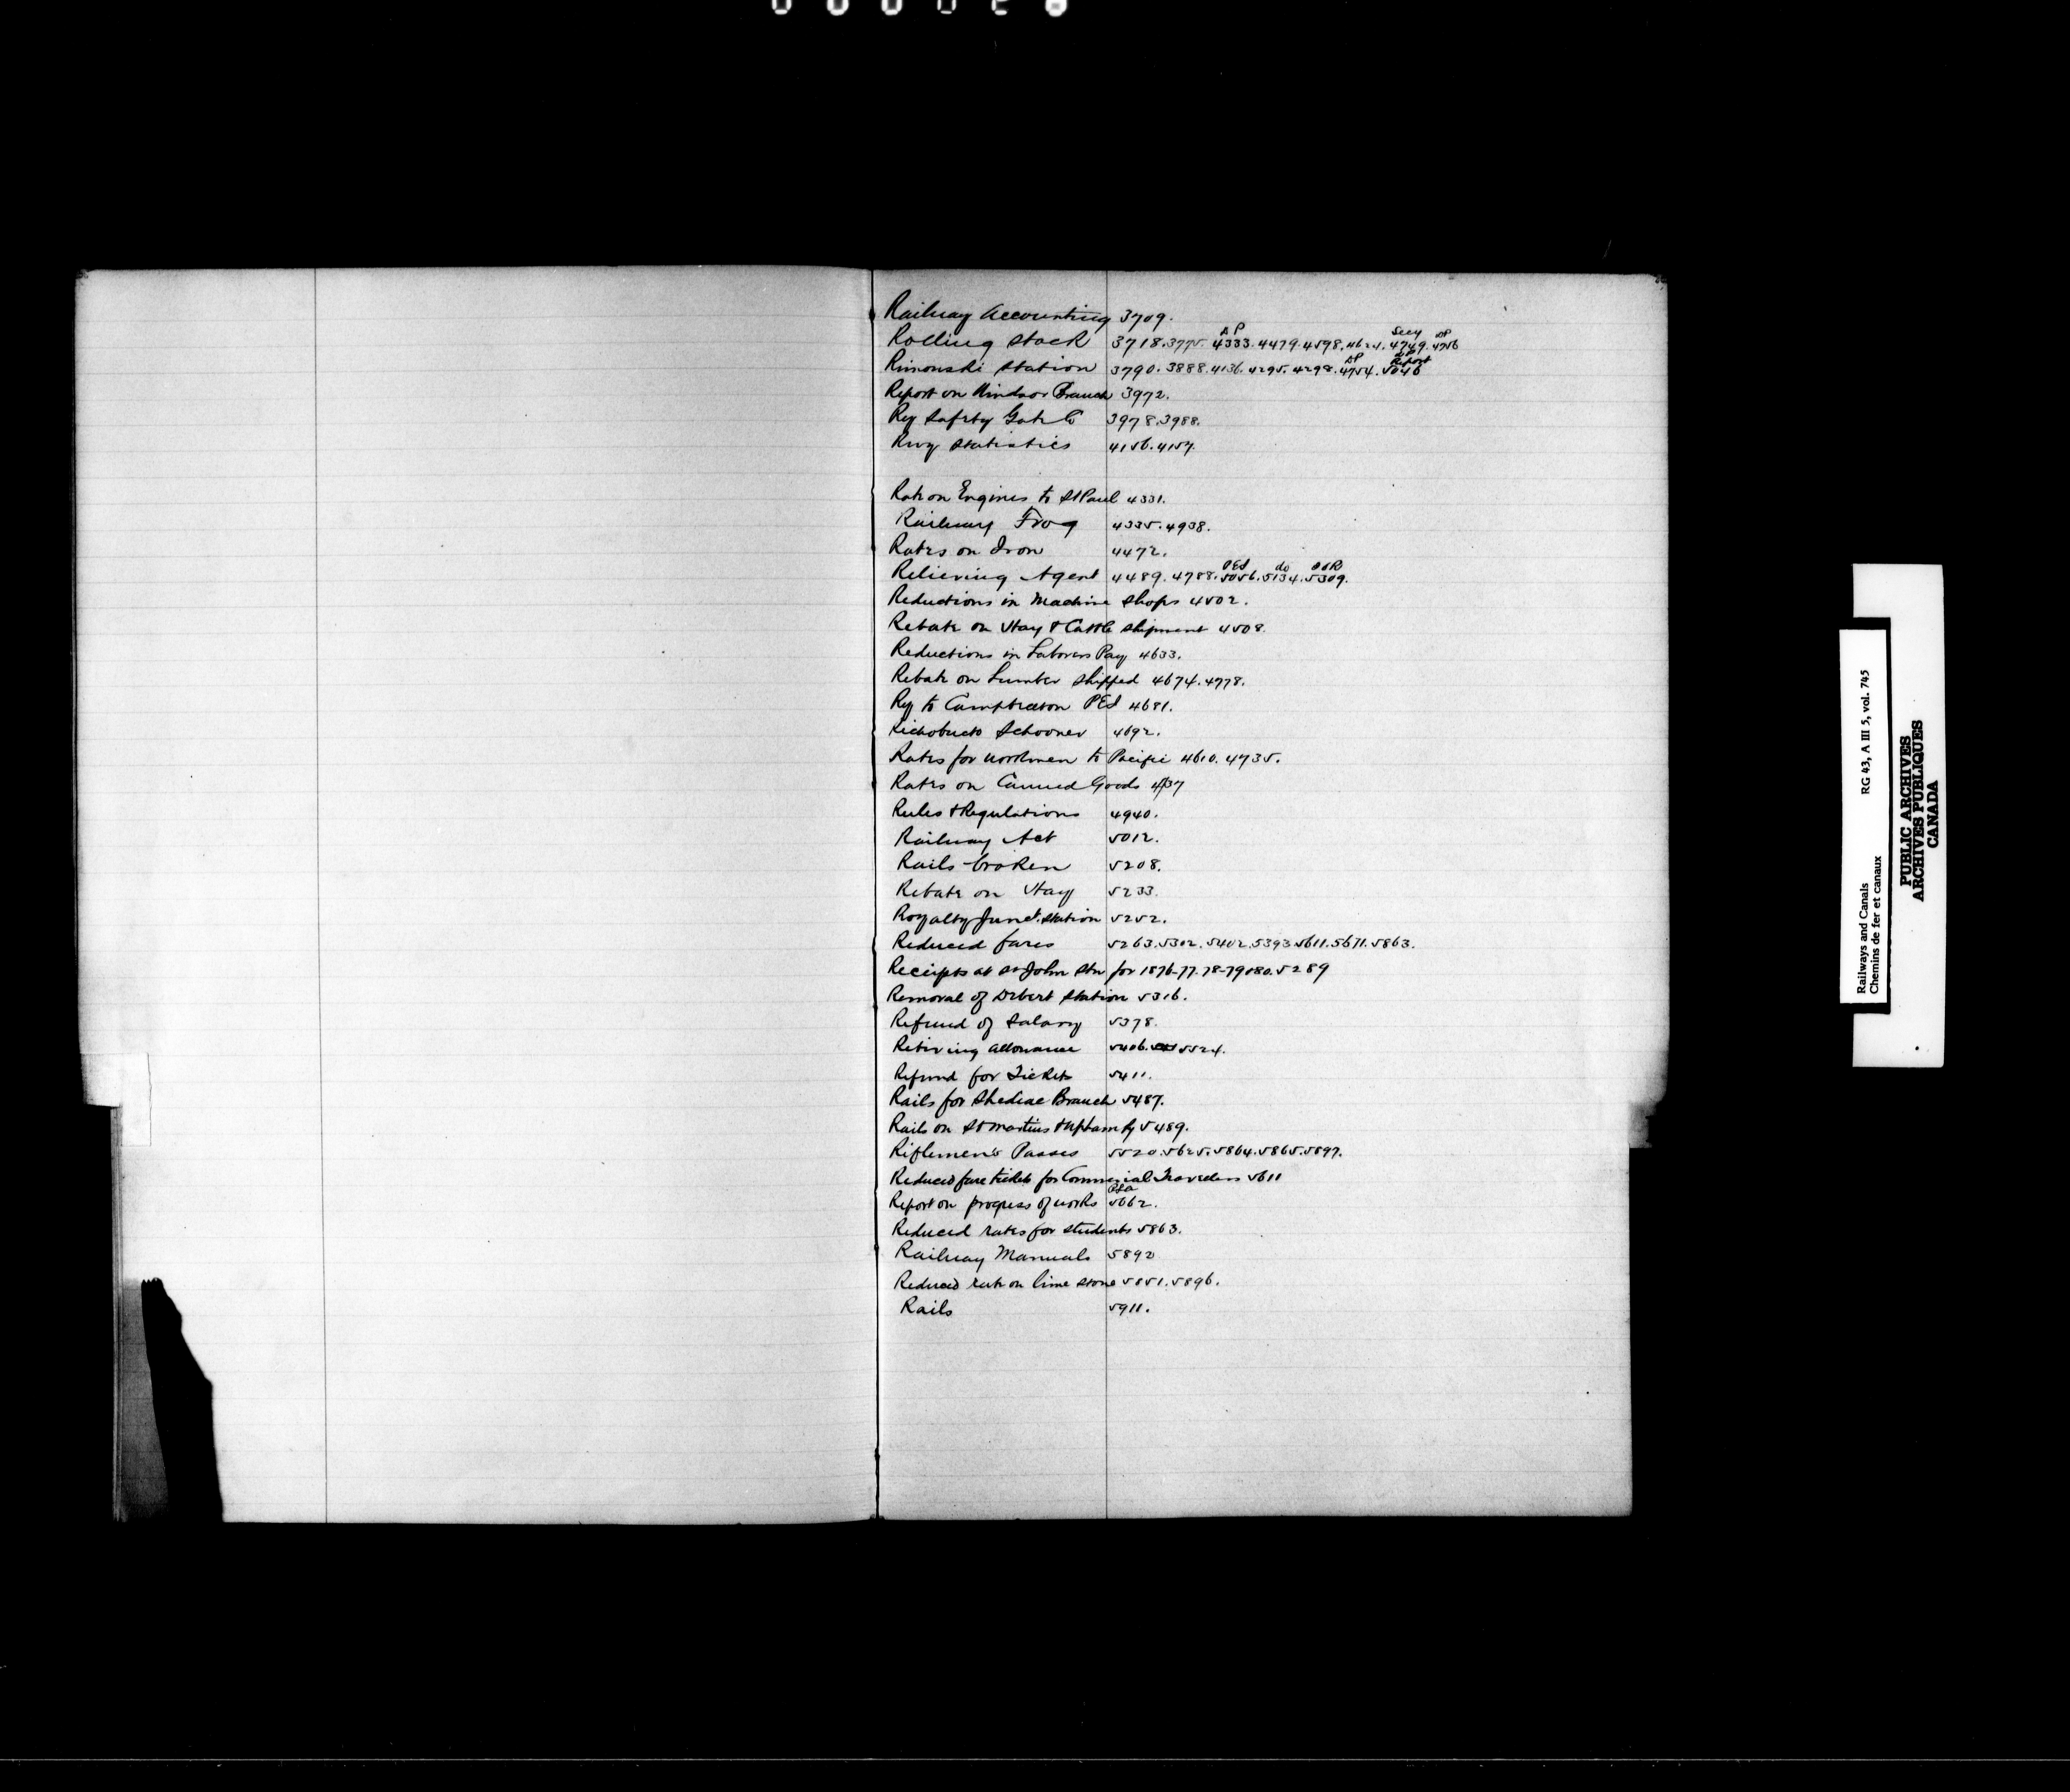 Railway Accounting 3709.
Rolling Stock 3718. 3775. 4333. 4479. 4598. 4624. 4749. 4756
Rimouski Station 3790. 3888. 4136. 4295. 4298. 4754. 5046
Report on Windsor Branch 3972.
Ry Safety Gate Co 3978. 3988.
Rwy Statistics 4156. 4157.
Rate on Engines to St Paul 4331.
Railway Frog 4335. 4938.
Rates on Iron 4472.
Relieving Agent 4489. 4788. 5056. 5134. 5309.
Reductions in Machine Shops 4502.
Rebate on Hay & Cattle shipment 4508.
Reductions in Laborers Pay 4633.
Rebate on Lumber shipped 4674. 4778.
Ry to Campbelton PEI 4681.
Richobucto Schooner 4692.
Rates for workmen to Pacific 4610. 4735.
Rates on Canned Goods
Rules & Regulations 4940.
Railway Act 5012.
Rails - broken 5208.
Rebate on Hay 5233.
Royalty Junct. Station 5252.
Reduced fares 5263. 5302. 5402. 5393. 5611. 5671. 5863.
Receipts at St John Stn for 1876-77-78-79&80. 5289
Removal of Debert Station 5316.
Refund of Salary 5378.
Retiring allowance 5406. 5524.
Refund for Tickets 5411.
Rails for Shediac Branch 5487.
Rails on St Martins & Upham Ry 5489.
Riflemen's Passes 5520. 5625. 5864. 5865. 5897.
Reduced fare tickets for Commercial Travellers 5611
Report on progress of works 5662.
Reduced rates for students 5863.
Railway Manuals 5892
Reduced rate on lime stone 5851. 5896.
Rails 5911.
Railways and Canals RG 43, A III 5, vol. 745
Chemins de fer et canaux
PUBLIC ARCHIVES
ARCHIVES PUBLIQUES
CANADA